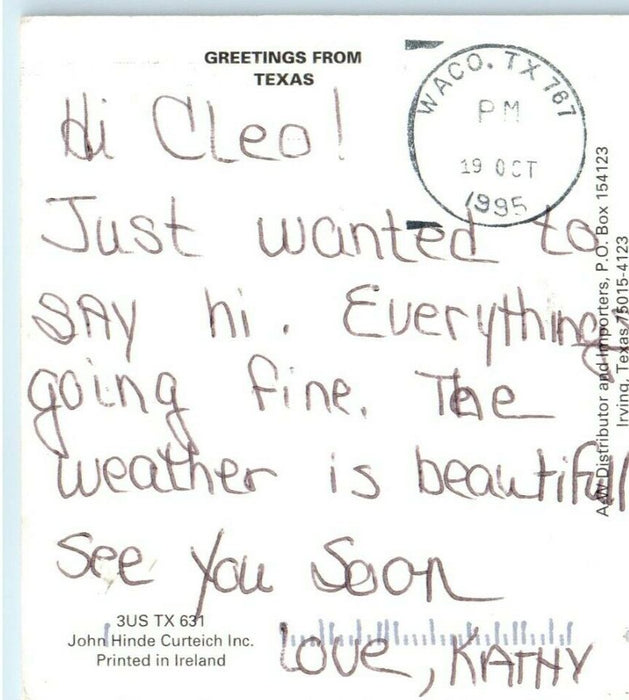 GREETINGS FROM
TEXAS
WACO. TX 767
PM
19 OCT
1995
Hi Cleo!
Just wanted to
SAY hi. Everything
going fine. The
weather is beautiful
See You Soon
Love, KATHY
3US TX 631
John Hinde Curteich Inc.
Printed in Ireland
A-W Distributor and Importers, P.O. Box 154123
Irving, Texas 75015-4123